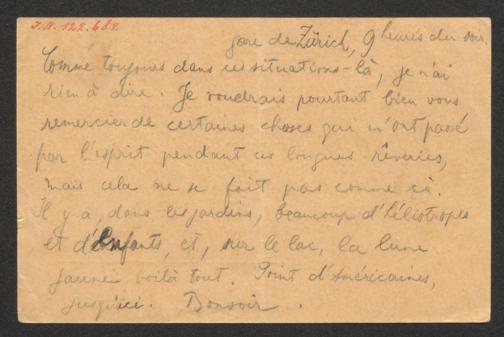 J.N. 122.682
gare de Zürich, 9 heures du soir.
Comme toujours dans ces situations-là, je n'ai
rien à dire. Je voudrais pourtant bien vous
remercier de certaines choses qui m'ont passé
par l'esprit pendant ces longues rêveries,
mais cela ne se fait pas comme çà.
Il y a, dans les jardins, beaucoup d'héliotropes
et d'Enfants, et, sur le lac, la lune
jaune voilà tout. Point d'Américaines,
jusqu'ici. Bonsoir.